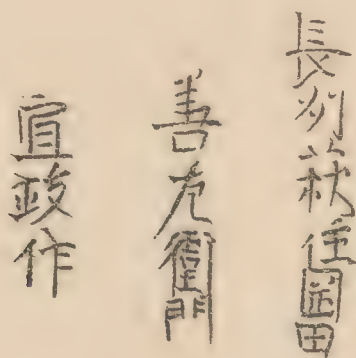 長州萩住岡田
善左衛門
宣政作